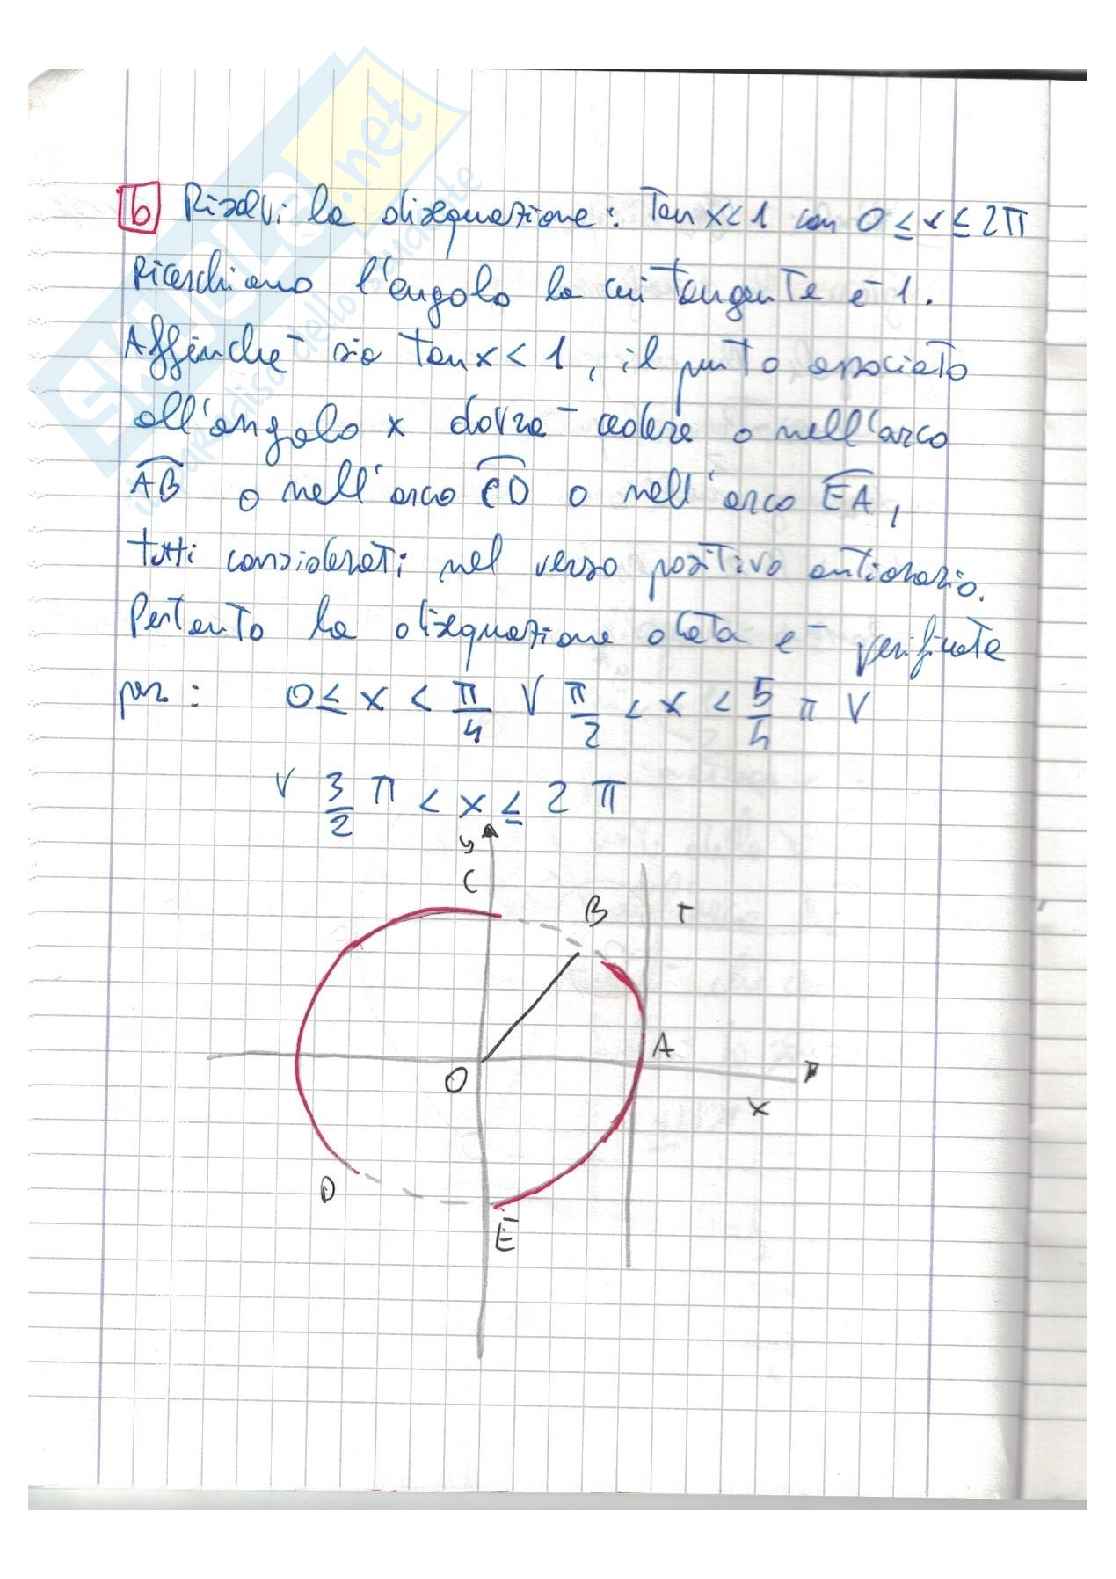 16 Risolvi la disequazione: Tan x < 1 con 0 ≤ x ≤ 2π
Ricerchiamo l'angolo la cui tangente è 1.
Affinché sia tan x < 1, il punto associato
all'angolo x dovrà cadere o nell'arco
AB o nell'arco CD o nell'arco EA,
tutti considerati nel verso positivo antiorario.
Pertanto la disequazione data è verificata
per: 0 ≤ x < π/4 V π/2 < x < 5/4 π V
V 3/2 π < x ≤ 2 π
y
C
B T
A
O
x
D
E